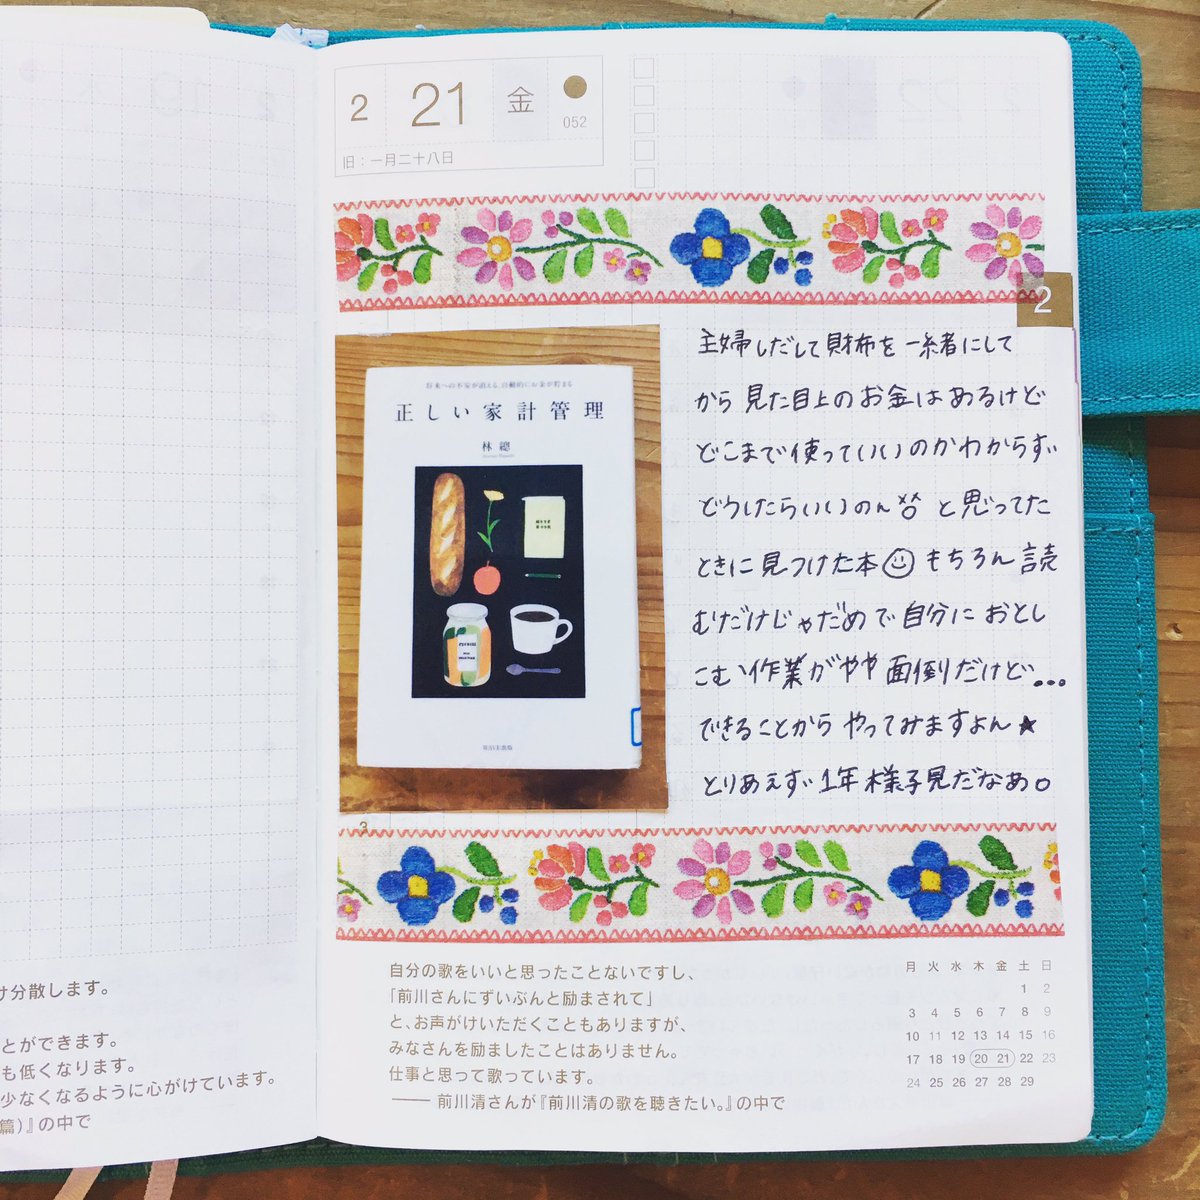 2
21
金
052
旧：一月二十八日
2
将来への不安が消える、自動的にお金が貯まる
正しい家計管理
林總
主婦しだして財布を一緒にして
から見た目上のお金はあるけど
どこまで使っていいのかわからず
どうしたらいいのん と思ってた
ときに見つけた本 もちろん読
むだけじゃだめで自分におとし
こむ作業がやや面倒だけど...
できることからやってみますよん★
とりあえず1年様子見だなぁ。
3
け分散します。
とができます。
も低くなります。
少なくなるように心がけています。
篇）』の中で
自分の歌をいいと思ったことないですし、
「前川さんにずいぶんと励まされて」
と、お声がけいただくこともありますが、
みなさんを励ましたことはありません。
仕事と思って歌っています。
―― 前川清さんが『前川清の歌を聴きたい。』の中で
月 火 水 木 金 土 日
1 2
3 4 5 6 7 8 9
10 11 12 13 14 15 16
17 18 19 20 21 22 23
24 25 26 27 28 29